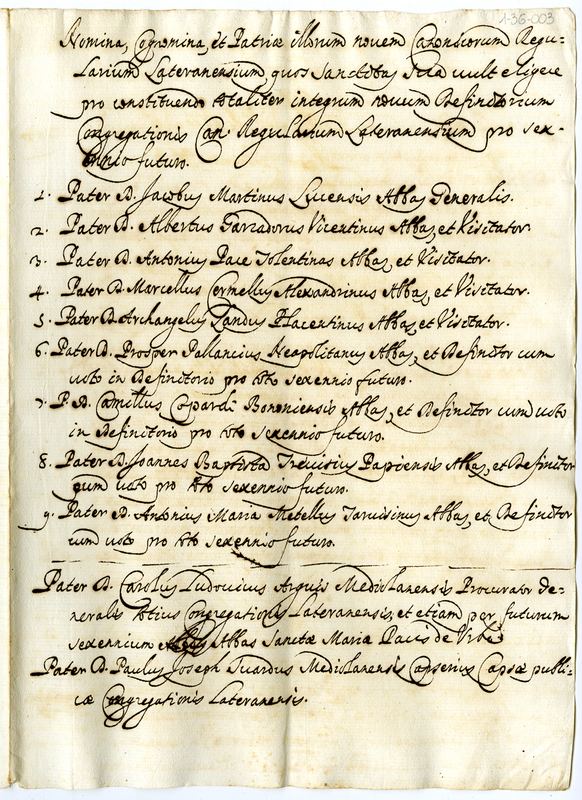 1-36-003
Nomina, Cognomina, et Patriæ illorum novem Canonicorum Regu-
larium Lateranensium, quos Sanctitas Sua vult eligere
pro constituendo totaliter integrum novum Definitorium
Congregationis Can. Regularium Lateranensium pro sex-
ennio futuro.
1. Pater D. Jacobus Martinus Lucensis Abbas Generalis.
2. Pater D. Albertus Garzadorus Vicentinus Abbas, et Visitator.
3. Pater D. Antonius Pace Tolentinas Abbas, et Visitator.
4. Pater D. Marcellus Cermellus Alexandrinus Abbas, et Visitator.
5. Pater D. Archangelus Landus Placentinus Abbas, et Visitator.
6. Pater D. Prosper Pallancius Neapolitanus Abbas, et Definitor cum
voto in Definitorio pro toto sexennio futuro.
7. P. D. Camillus Bononiensis Abbas, et Definitor cum voto
in Definitorio pro toto sexennio futuro.
8. Pater D. Joannes Baptista Papiensis Abbas, et Definitor
cum voto pro toto sexennio futuro.
9. Pater D. Antonius Maria Metellus Tarvisinus Abbas, et Definitor
cum voto pro toto sexennio futuro.
Pater D. Carolus Ludovicus Mediolanensis Procurator Ge-
neralis totius Congregationis Lateranensis, et etiam per futurum
sexennium Abbas Sanctæ Mariæ Pacis de Urbe
Pater D. Paulus Joseph Mediolanensis Capserius Capsæ publi-
cæ Congregationis Lateranensis.